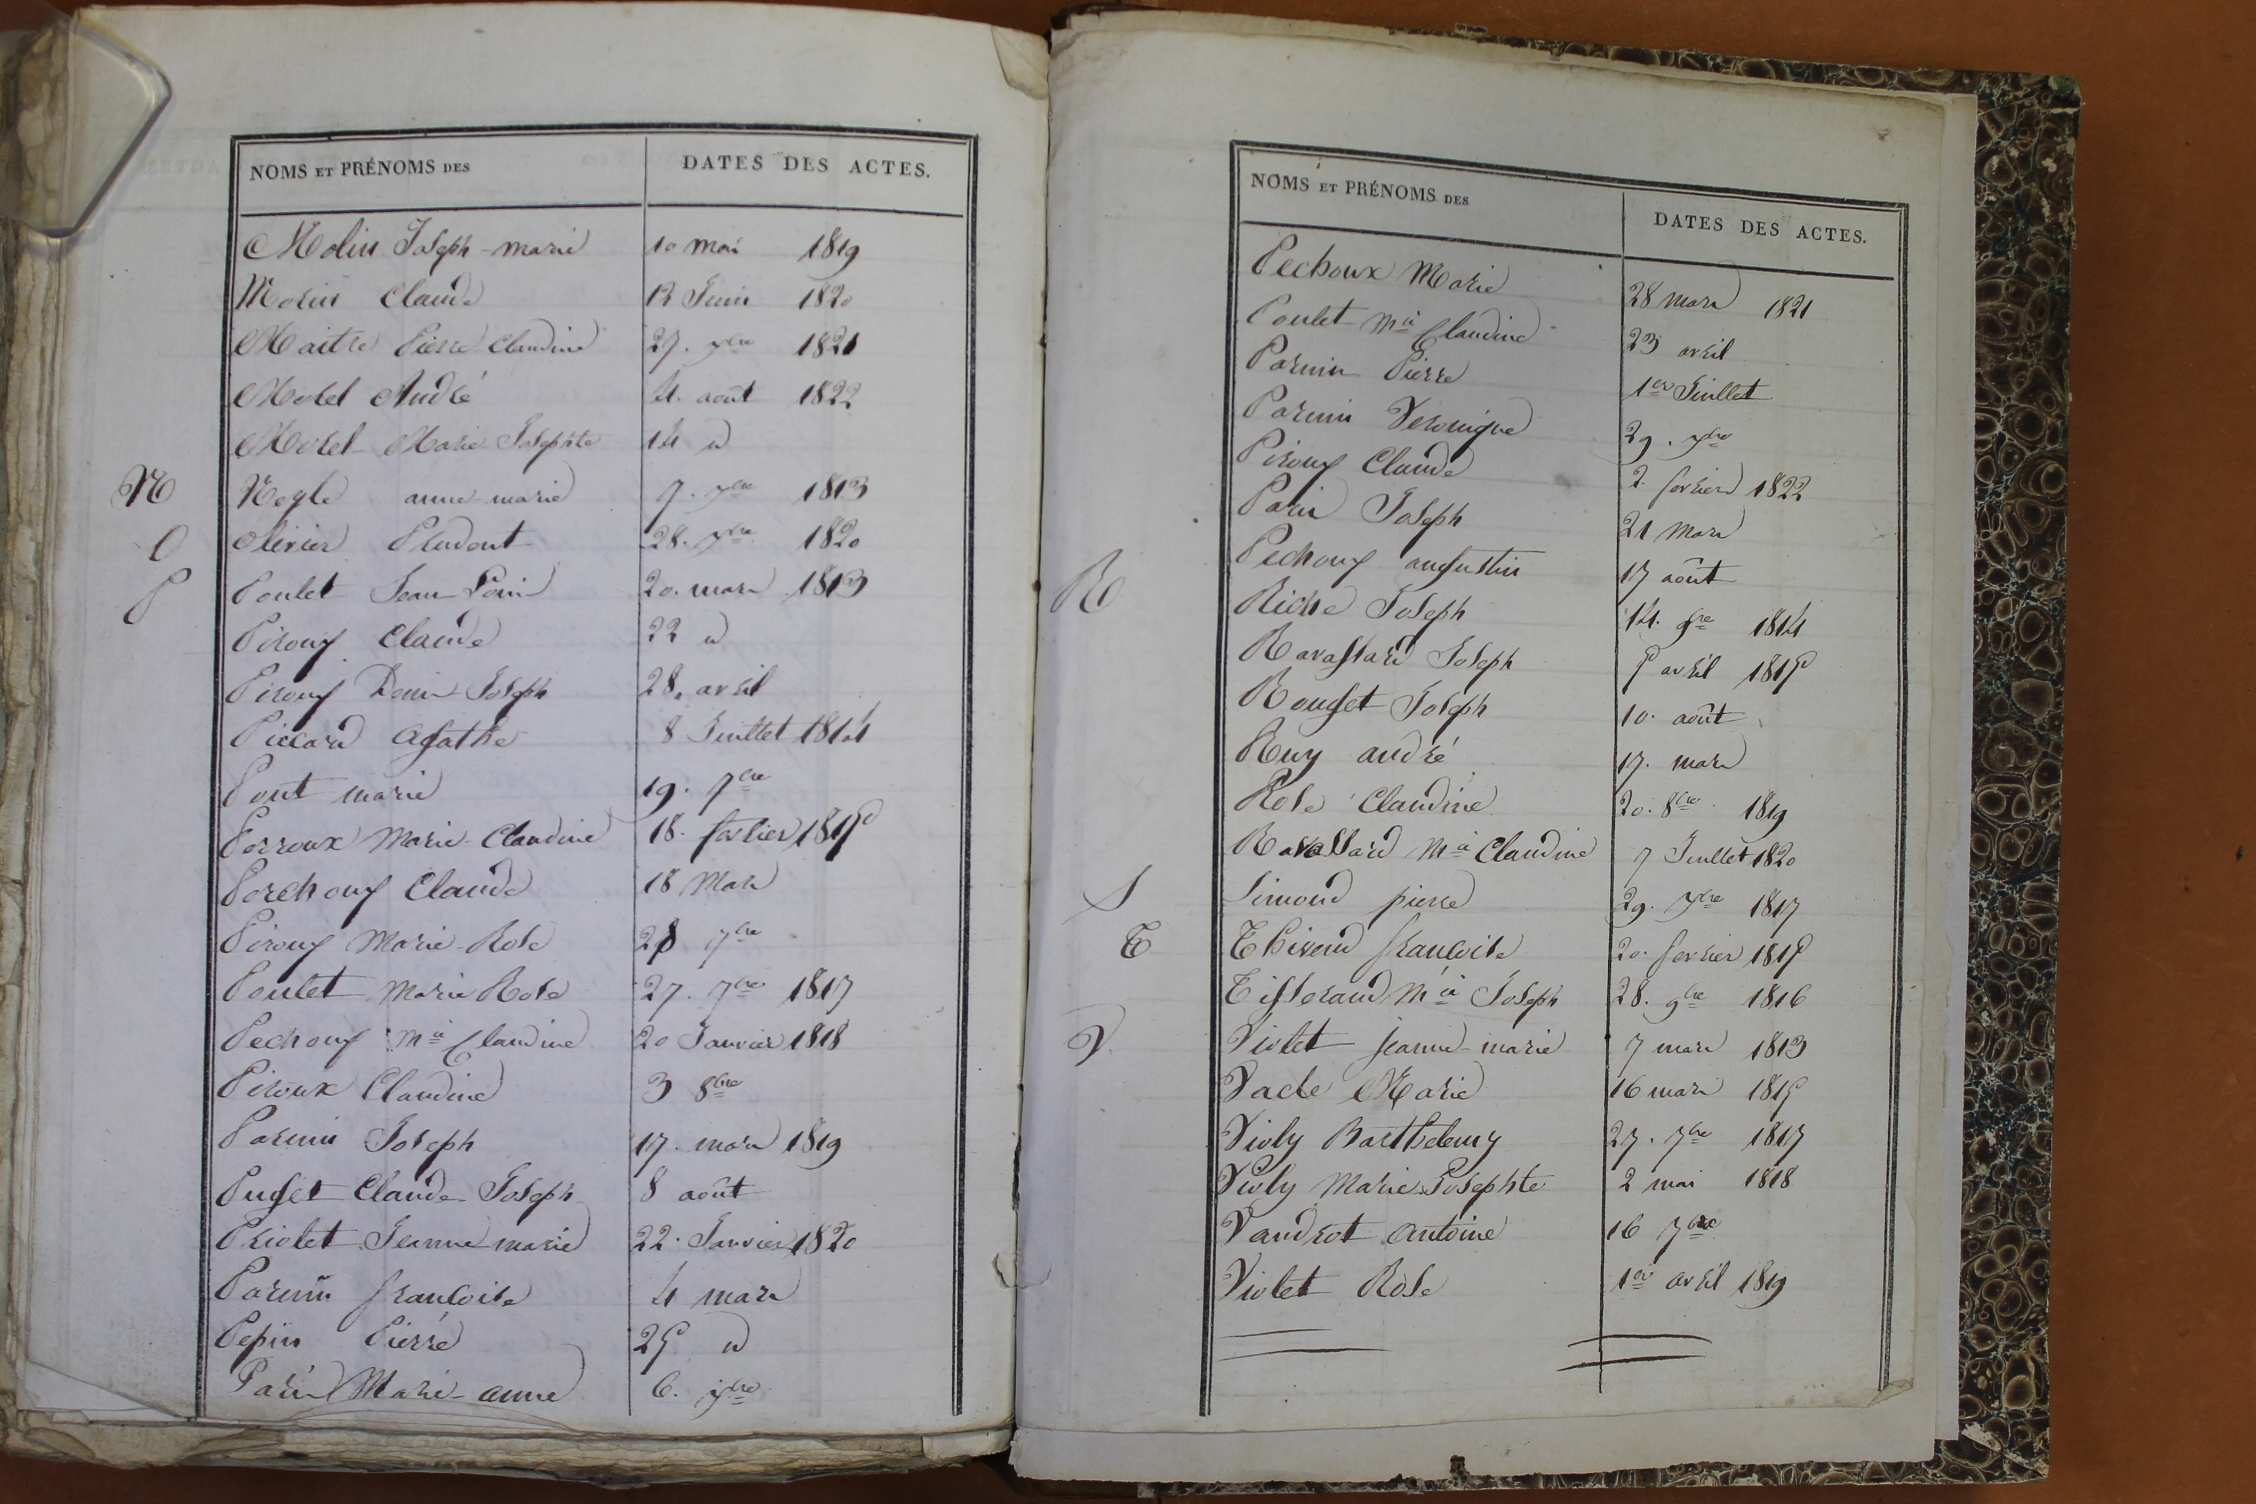 NOMS ET PRÉNOMS DES DATES DES ACTES.
Molin Joseph-marie 10 mai 1819
Morin Claude 12 Juin 1820
Maitre Pierre Claudine 27. 7bre 1821
Morel André 4. août 1822
Morel Marie Josephte 14 d
N Negle anne marie 7. 7bre 1813
O olivier Prudent 28. 7bre 1820
P Poulet Jean Louis 20. mars 1813
Piroux Claude 22 d
Piroux Denis Joseph 28. avril
Piccard Agathe 8 Juillet 1814
Pont marie 19. 7bre
Perroux Marie-Claudine 18. fevrier 1815
Perchoux Claude 18 Mars
Piroux Marie-Rose 28 7bre
Poulet Marie Rose 27. 7bre 1817
Pechoux Mie Claudine 20 Janvier 1818
Piroux Claudine 3 8bre
Parmin Joseph 17. mars 1819
Puget Claude-Joseph 8 août
Priolet Jeanne marie 22. Janvier 1820
Parmin francoise 4 mars
Pepin Pierre 25 d
Paris Marie-anne 6. 7bre
NOMS ET PRÉNOMS DES DATES DES ACTES.
Pechoux Marie 28 mars 1821
Poulet Mie Claudine 23 avril
Parmin Pierre 1er Juillet
Parmin Veronique 29. 7bre
Piroux Claude 2. fevrier 1822
Paris Joseph 21 Mars
Pechoux augustin 17 août
R Riche Joseph 14. 9bre 1814
Ravassard Joseph 5 avril 1815
Rouget Joseph 10. août
Ruy andré 17. mars
Rose Claudine 20. 8bre 1819
Ravassard Mie Claudine 7 Juillet 1820
S Simond pierre 29. 7bre 1817
T Thivend francoise 20. fevrier 1815
Tisserand Mie Joseph 28. 9bre 1816
V Violet jeanne-marie 7 mars 1813
Vacle Marie 16 mars 1815
Violy Barthelemy 27. 7bre 1817
Violy Marie Josephte 2 mai 1818
Vandrot Antoine 16 7bre
Violet Rose 1er avril 1819